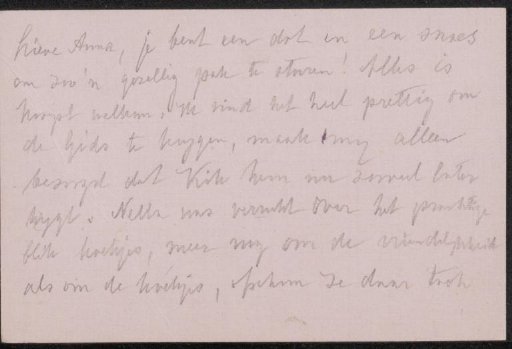 Lieve Anna, je bent een dot en een snoes
om zoo'n gezellig pak te sturen! Alles is
hoogst welkom. Ik vind het heel prettig om
de gids te krijgen, maak my alleen
bezorgd dat Kik hem nu zooveel later
krygt. Nella was verrukt over het prachtige
blik koekjes, meer nog om de vriendelijkheid
als om de koekjes, ofschoon ze daar toch